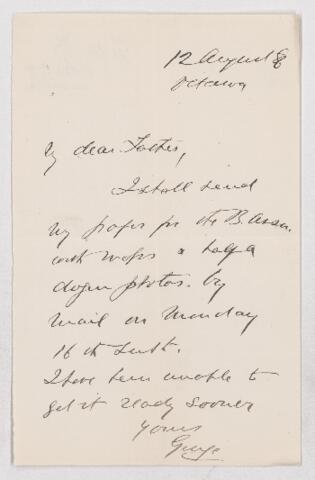 12 August 86
Ottawa
My dear Father,
I shall send
my paper for the B. Assn.
with maps & half a
dozen photos. by
mail on Monday
16th Inst.
I have been unable to
get it ready sooner
Yours
George